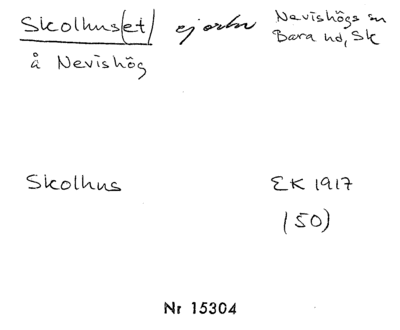 Skolhus(et) ejortn Nevishögs sn
Bara hd, Sk
å Nevishög
Skolhus EK 1917
(50)
Nr 15304